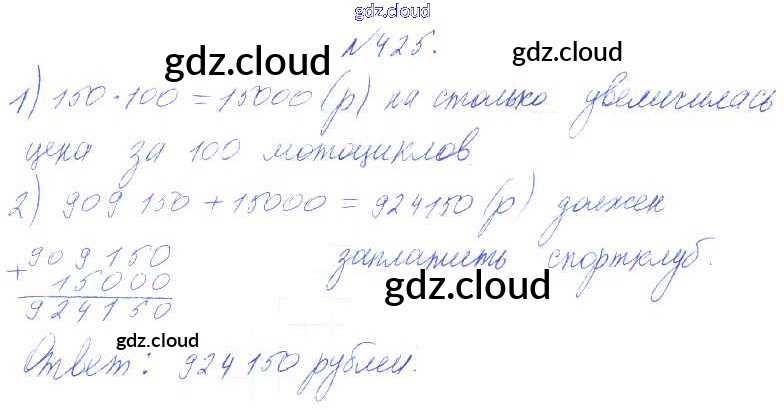 gdz.cloud
№425.
gdz.cloud gdz.cloud
1) 150·100=15000(р) на столько увеличилась
цена за 100 мотоциклов
gdz.cloud gdz.cloud
2) 909 150+15000=924150(р) должен
заплатить спортклуб.
+ 909150
15000
924150
gdz.cloud
gdz.cloud
Ответ: 924150 рублей.